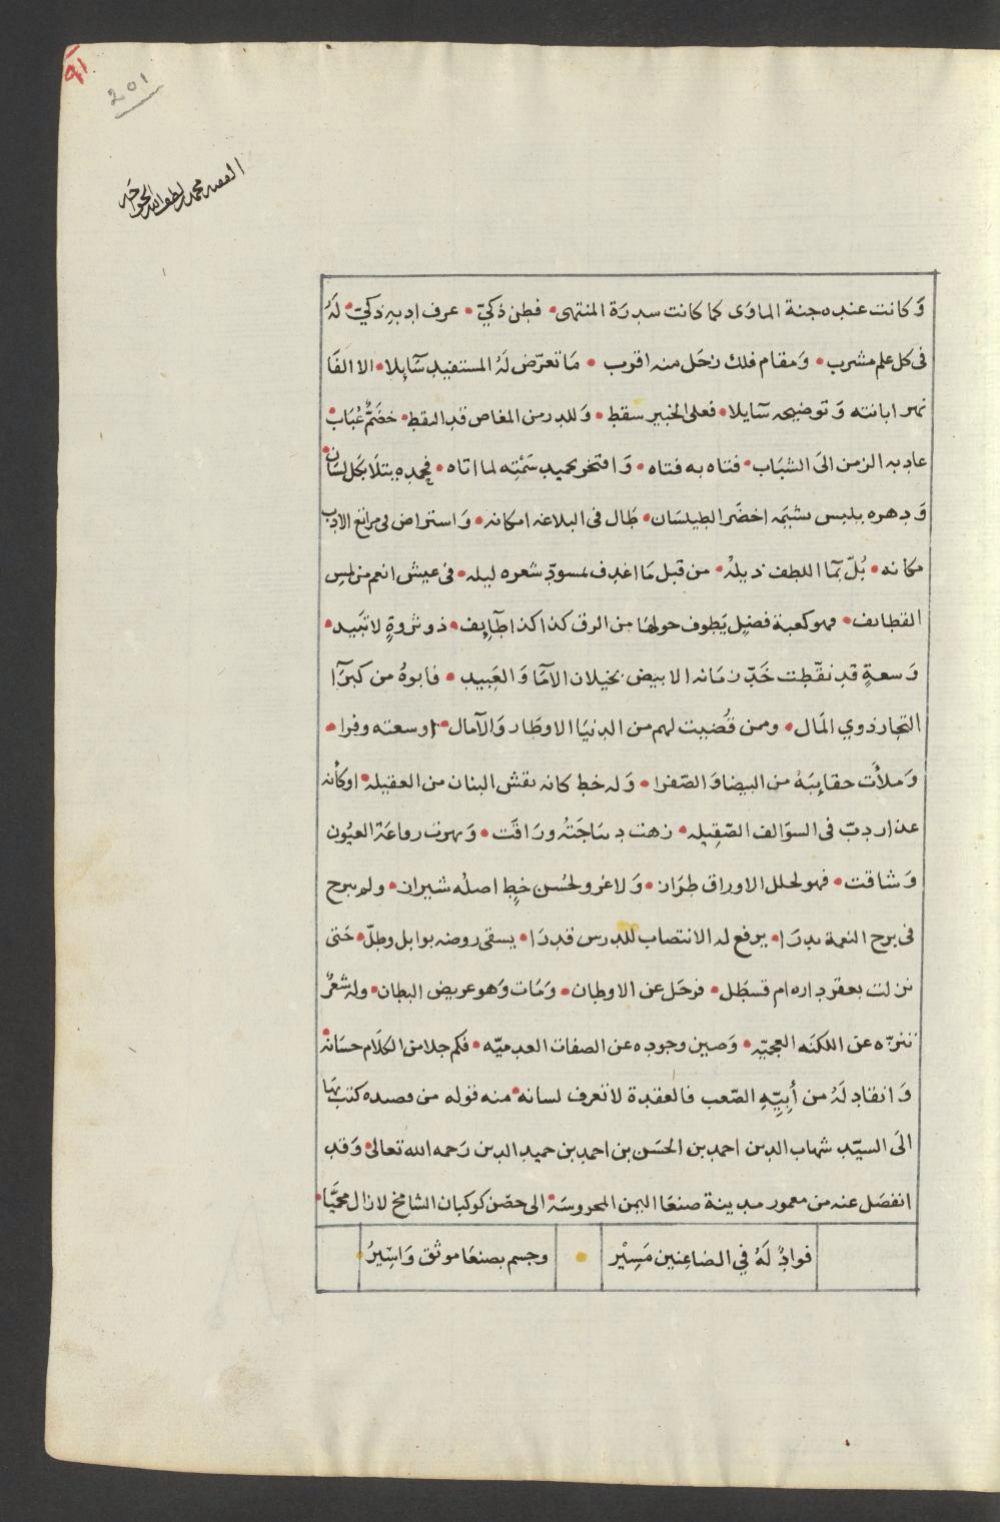 91
201
الفصه محمد لطف الله الخواجه
وَكانت عنده جنة الماوَى كما كانت سدرَة المنتهى • فطن ذكيّ • عرف ادبه زكيّ • لَهُ
فى كل علم مشرب • وَمقام فلك زحَل منه اقرب • مَا تعرّض لَهُ المستفيد سَآيلا • الا الفَا
نهر ابانته وَتوضيحه سَآيلا • فعلى الخبير سقط • وَللدر من المغاص قد التقط • خضَمٌّ عُبَابٌ
عاد به الزمن الىَ الشبَاب • فتاه به فتاه • وَافتخر بحميد سَمْتِه لما اتاه • فحمده يتلَا بكل لسَان
وَدهره يلبس بشيَمه اخضَر الطيلسَان • طَال فى البلاغه امكانه • وَاستراض فى مراتع الادب
مكانه • بُلّ بمَا اللطف ذيله • من قبل مَا اغدف بمسودّ شعره ليله • فى عيش انعم من لمس
القطايف • فهو كعبة فضيل يَطوف حولهَا من الرفـ كذا كذا طَآيف • ذو ثروةٍ لا تبَيد •
وَسعةٍ قد نقّطت خَدّ زمَانه الابيض بخيلان الآمَا وَالعَبيد • فابوهُ من كبرَآ
التجار ذوي المَال • وممن قُضيت لهم من الدنيَا الاوطَار وَالآمال • اوسعته وفرا •
وَملأت حقايبَهُ من البيضا وَالصّفرا • وَله خط كانه نقش البنان من العقيله • اوكأنه
عذار دبّ فى السوَالف الصّقيله • زهت ديبَاجَتُه ورَاقَت • وَبهرت رواعَهُ العيُون
وَشاقت • فهو لحلل الاوراق طرَاز • وَلا غرو لحُسن خطٍ اصلُه شيراز • ولم يبرح
فى برج النعمة بدرَا • يرفع له الانتصاب للدرس قدرَا • يسقى روضه بوابل وطلّ • حَتى
نزلت بعقر داره ام قسطَل • فرحَل عن الاوطان • وَمَات وَهو عريض البطان • وله شعرٌ
ننزّه عن اللكنَه العجميّه • وَصين وجوده عن الصفات العدميّه • فكم جلا من الكلَام حسَانه
وَانقاد لَهُ من أبِيّهِ الصّعب فالعقدة لا تعرف لسانه • منه قوله من قصيده كتب بهَا
الىَ السيّد شهاب الدين احمد بن الحسَن بن احمد بن حميد الدين رَحمه الله تعالى • وَقد
انفصَل عنه من معمور مدينة صنعَا اليمن المحروسَه • الى حصّن كوكبان الشامخ لا زال محيَّا •
فوادٌ لَهُ في الضاعِنين مَسِيْر • وجسم بصنعَا موثق وَاسِيرُ •